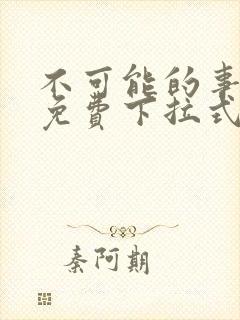 不可能的事
免费下拉式
秦阿期